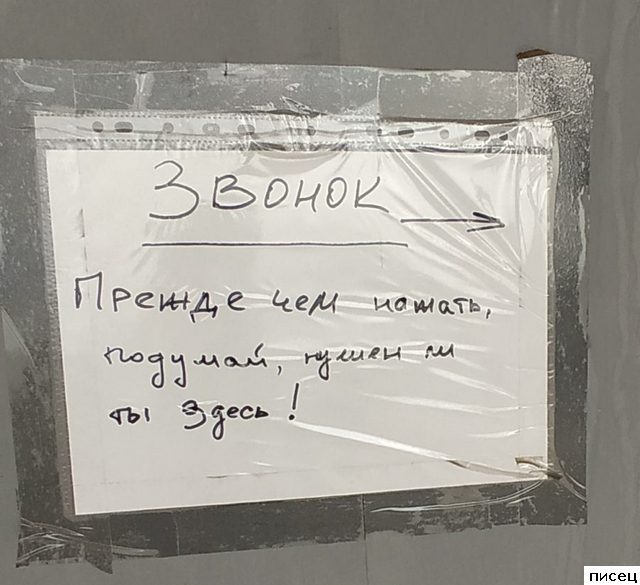 Звонок →
Прежде чем нажать,
подумай, нужен ли
ты здесь!
писец